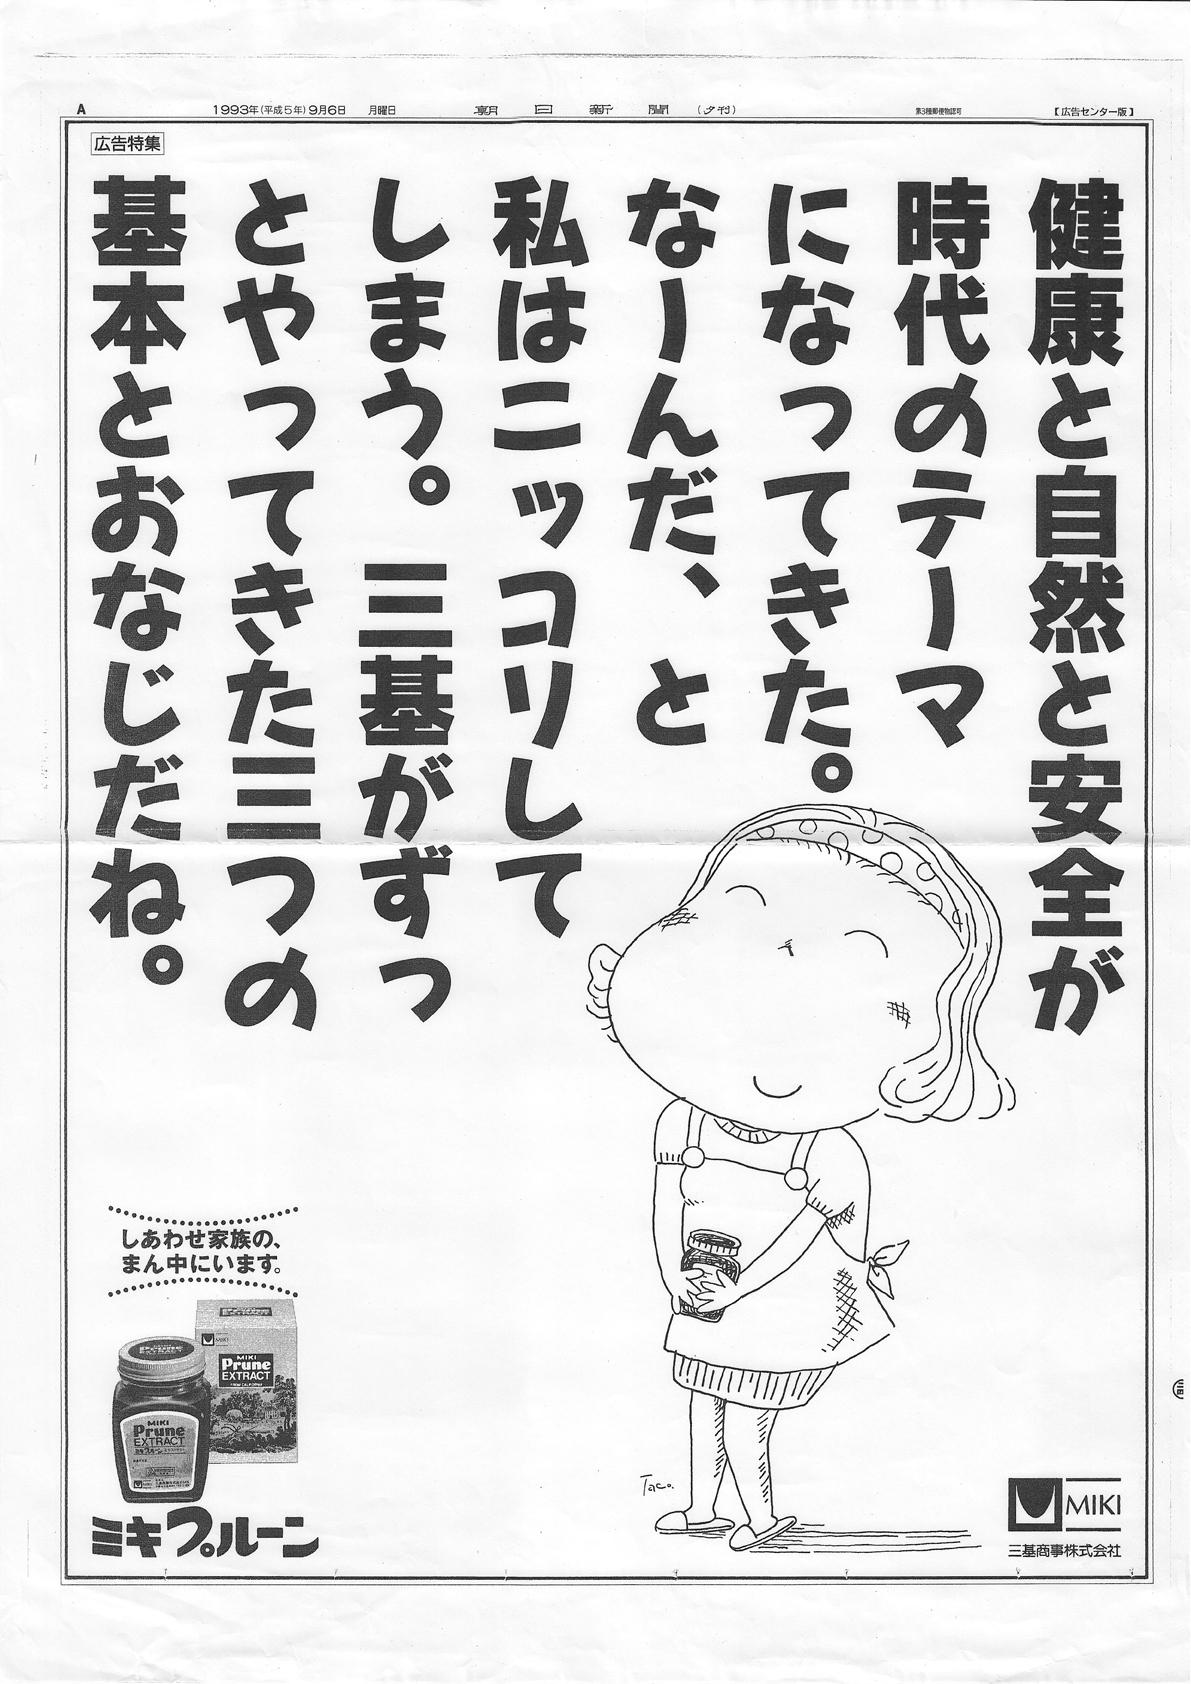 A
1993年(平成5年)9月6日 月曜日 朝日新聞 (夕刊) 第3種郵便物認可 【広告センター版】
広告特集
健康と自然と安全が
時代のテーマ
になってきた。
なーんだ、と
私はニッコリして
しまう。三基がずっ
とやってきた三つの
基本とおなじだね。
しあわせ家族の、
まん中にいます。
Prune
EXTRACT
MIKI
MIKI
Prune
EXTRACT
FROM CALIFORNIA
Prune
EXTRACT
MIKI
Prune
EXTRACT
ミキプルーン
ミキプルーン
Taco.
MIKI
三基商事株式会社